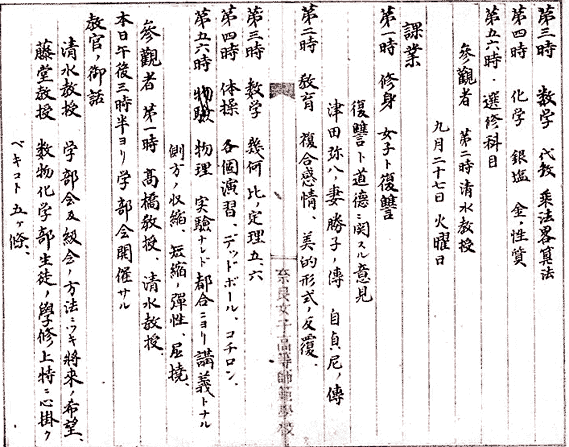 第三時 数学 代数 乗法畧算法
第四時 化学 銀塩 金ノ性質
第五六時・選修科目
参觀者 第二時清水教授
九月二十七日 火曜日
課業
第一時 修身 女子ト復讐
復讐ト道德ニ関スル意見
津田弥八ノ妻勝子ノ傳 自貞尼ノ傳
第二時 教育 複合感情、美的形式ノ反覆、
第三時 数学 幾何 比ノ定理 五、六
第四時 体操 各個演習、デッドボール、コチロン、
第五六時 物理 実験ナレド都合ニヨリ講義トナル
側方ノ収縮 短縮ノ彈性、屈撓、
参觀者 第一時 髙橋教授、清水教授、
本日午後三時半ヨリ学部会開催サル
教官ノ御話
清水教授 学部会及級会ノ方法ニツキ将來ノ希望、
藤堂教授 数物化学部生徒ノ學修上特ニ心掛ク
ベキコト五ヶ條、
奈良女子高等師範學校